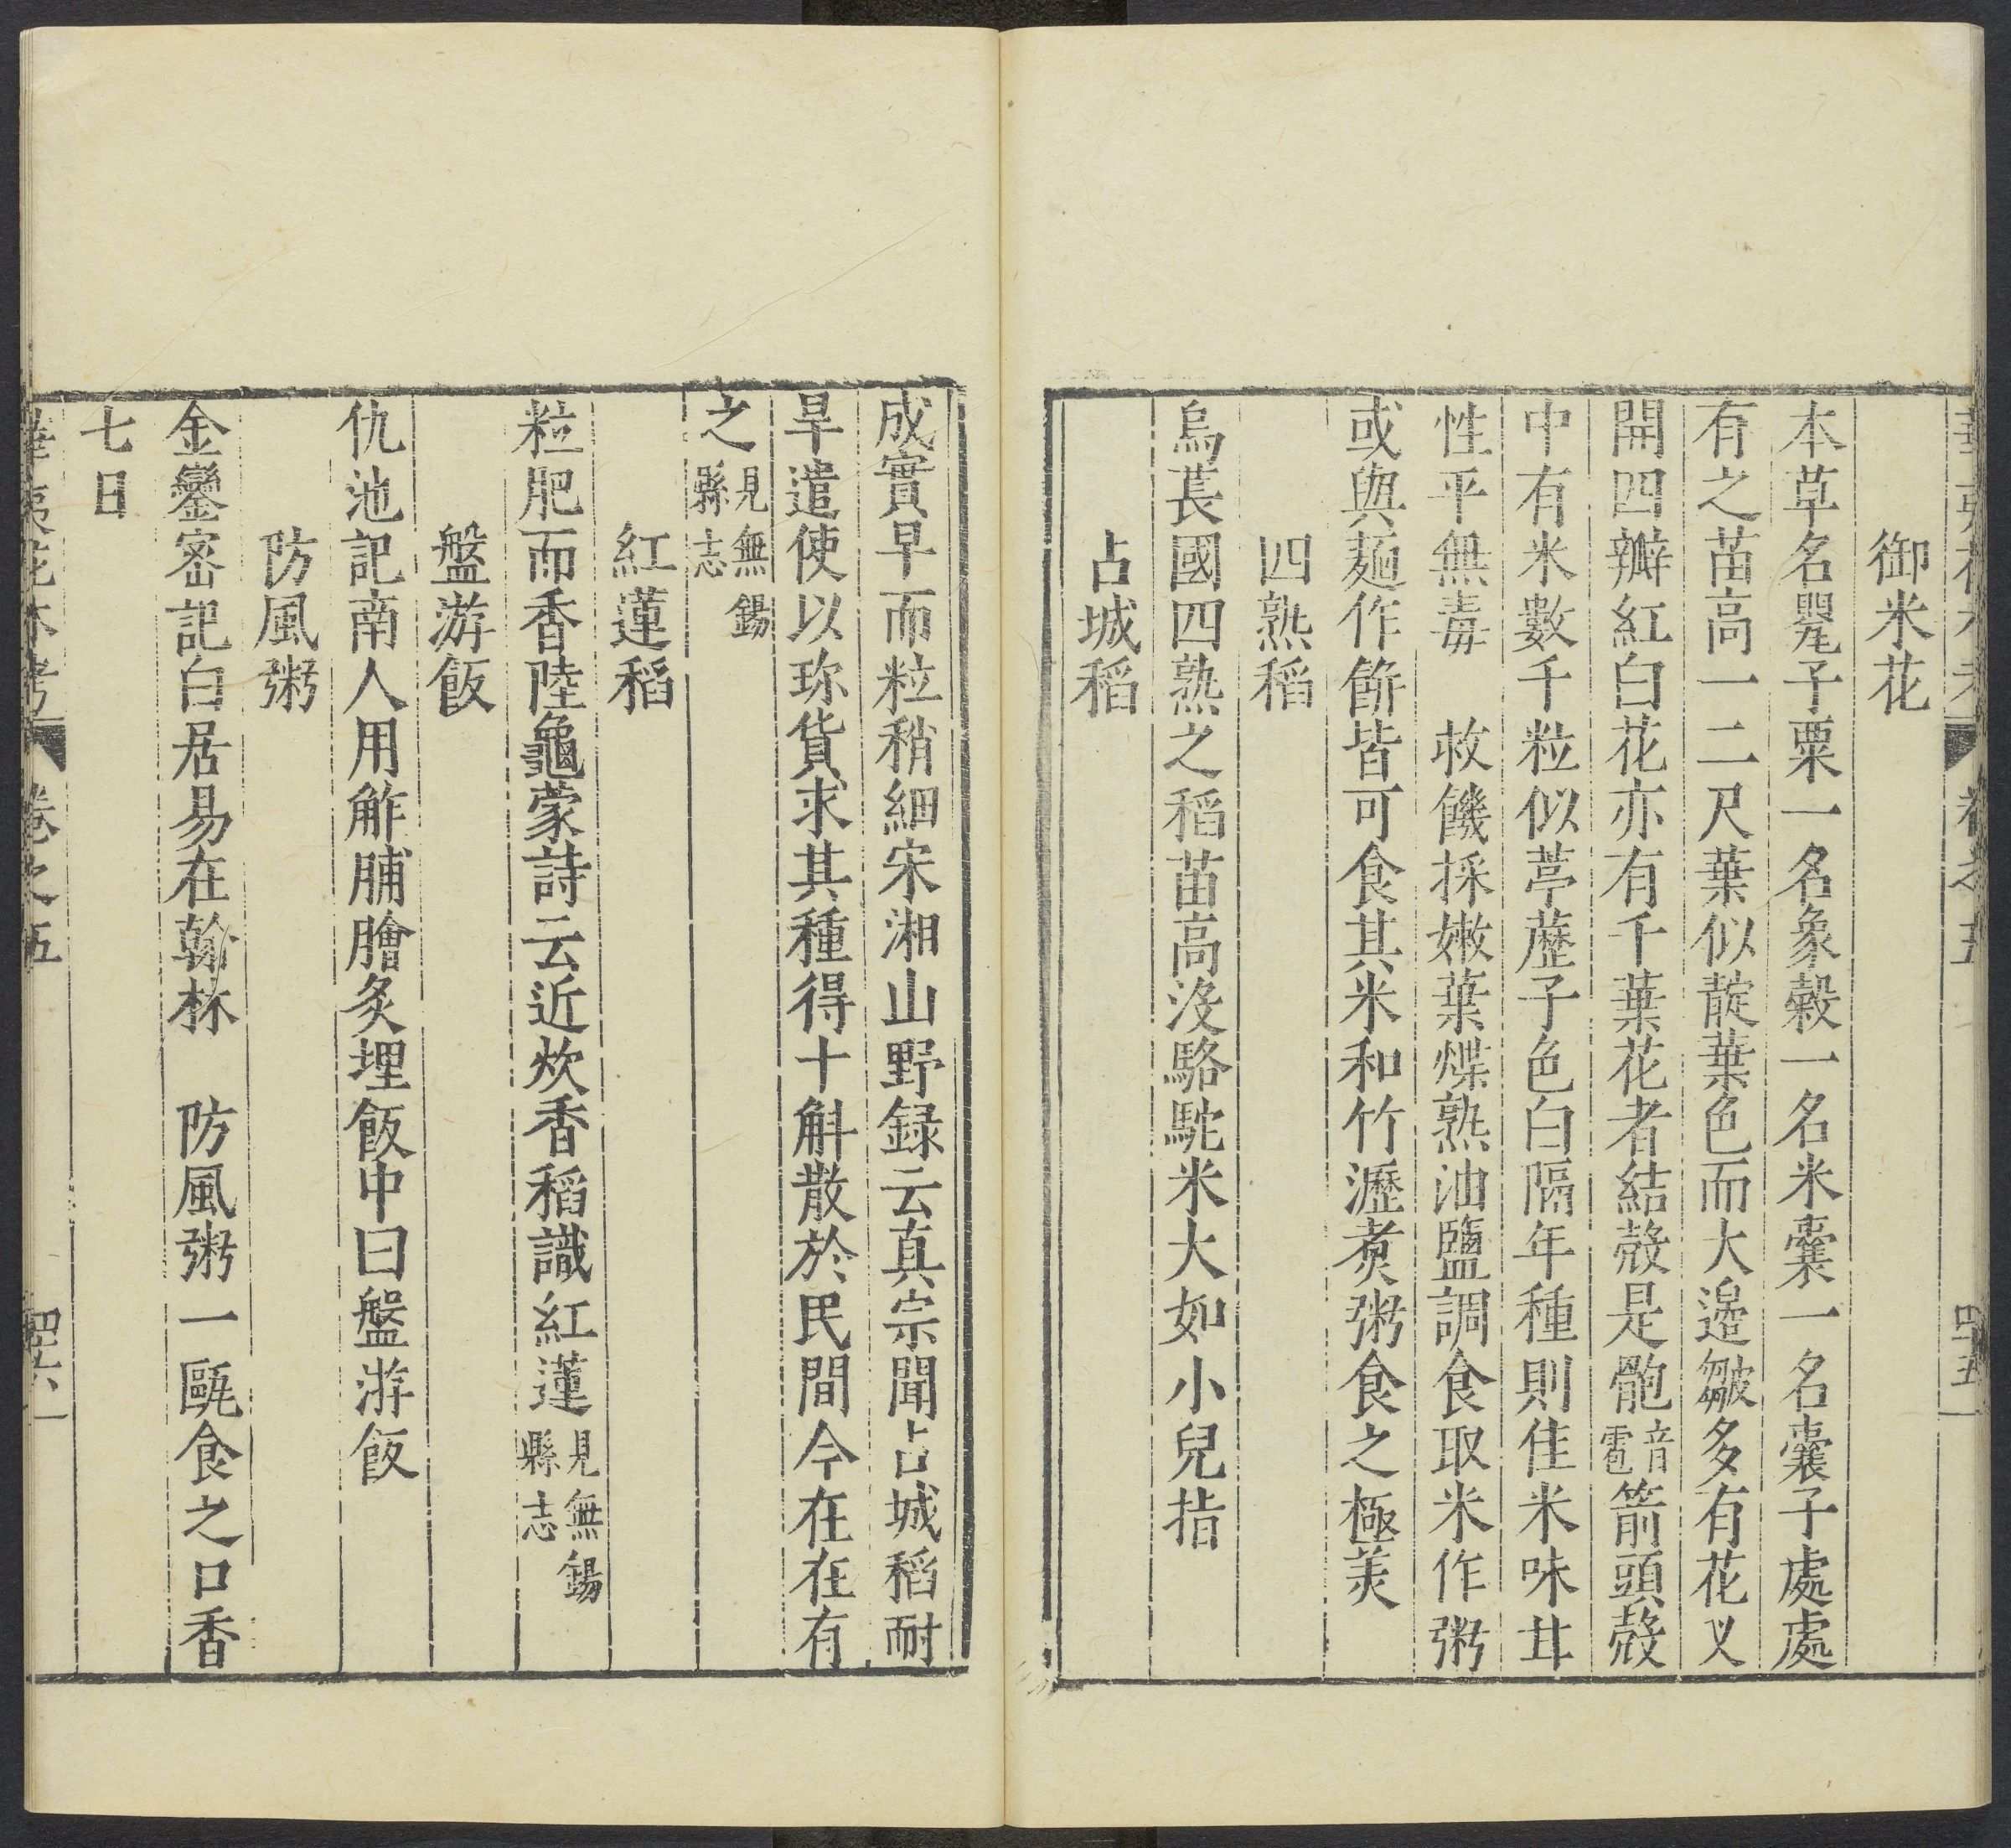 御米花
本草名罌子粟一名象榖一名米囊一名囊子處處
有之苗高一二尺葉似靛葉色而大邉皺多有花叉
開四瓣紅白花亦有千葉花者結殼是䯩音雹箭頭殼
中有米數千粒似葶藶子色白隔年種則佳米味甘
性平無毒　救饑採嫩葉煠熟油鹽調食取米作粥
或與麵作餅皆可食其米和竹瀝煑粥食之極美
四熟稻
烏萇國四熟之稻苗高沒駱駝米大如小兒指
占城稻
成實早而粒稍細宋湘山野録云真宗聞占城稻耐
旱遣使以珎貨求其種得十斛散於民間今在在有
之見無錫縣志
紅蓮稻
粒肥而香陸龜蒙詩云近炊香稻識紅蓮見無錫縣志
盤游飯
仇池記南人用鮓脯膾炙埋飯中曰盤游飯
防風粥
金鑾宻記白居易在翰林　防風粥一甌食之口香
七日
華夷花木考　卷之五　四十六